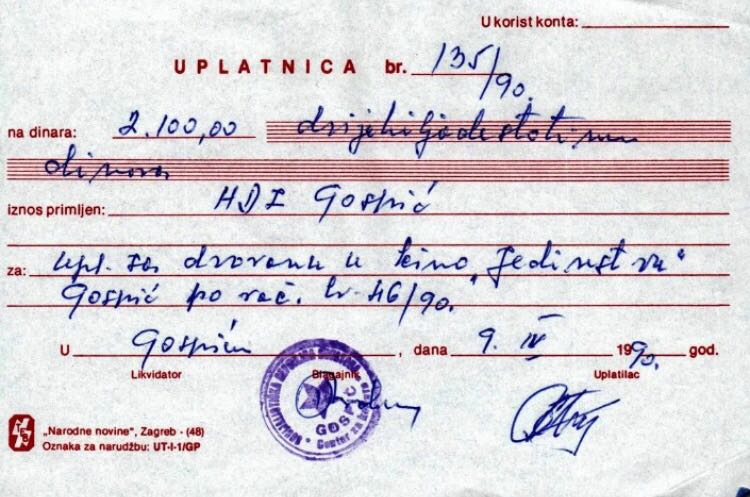 U korist konta:
UPLATNICA br. 135/90.
na dinara: 2.100,00 dvijehiljadestotinu
dinara
iznos primljen: HDZ Gospić
za: upl. za dvoranu u kino "Jedinstvu"
Gospić po rač. br. 46/90.
U Gospiću, dana 9. IV 1990. god.
Likvidator Blagajnik Uplatilac
GOSPIĆ
Centar za
"Narodne novine", Zagreb - (48)
Oznaka za narudžbu: UT-I-1/GP